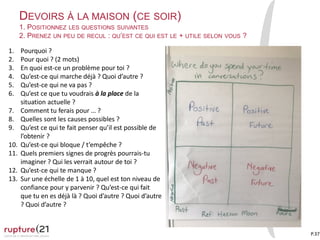 DEVOIRS À LA MAISON (CE SOIR)
1. POSITIONNEZ LES QUESTIONS SUIVANTES
2. PRENEZ UN PEU DE RECUL : QU'EST CE QUI EST LE + UTILE SELON VOUS ?
1. Pourquoi ?
2. Pour quoi ? (2 mots)
3. En quoi est-ce un problème pour toi ?
4. Qu'est-ce qui marche déjà ? Quoi d'autre ?
5. Qu'est-ce qui ne va pas ?
6. Qu'est ce que tu voudrais à la place de la
situation actuelle ?
7. Comment tu ferais pour … ?
8. Quelles sont les causes possibles ?
9. Qu'est ce qui te fait penser qu'il est possible de
l'obtenir ?
10. Qu'est-ce qui bloque / t'empêche ?
11. Quels premiers signes de progrès pourrais-tu
imaginer ? Qui les verrait autour de toi ?
12. Qu'est-ce qui te manque ?
13. Sur une échelle de 1 à 10, quel est ton niveau de
confiance pour y parvenir ? Qu'est-ce qui fait
que tu en es déjà là ? Quoi d'autre ? Quoi d'autre
? Quoi d'autre ?
Where do you spend your time
in conversations?
Positive Past
Positive Future
Negative Past
Negative Future
Ref: Haesun Moon
rupture 21
P.37